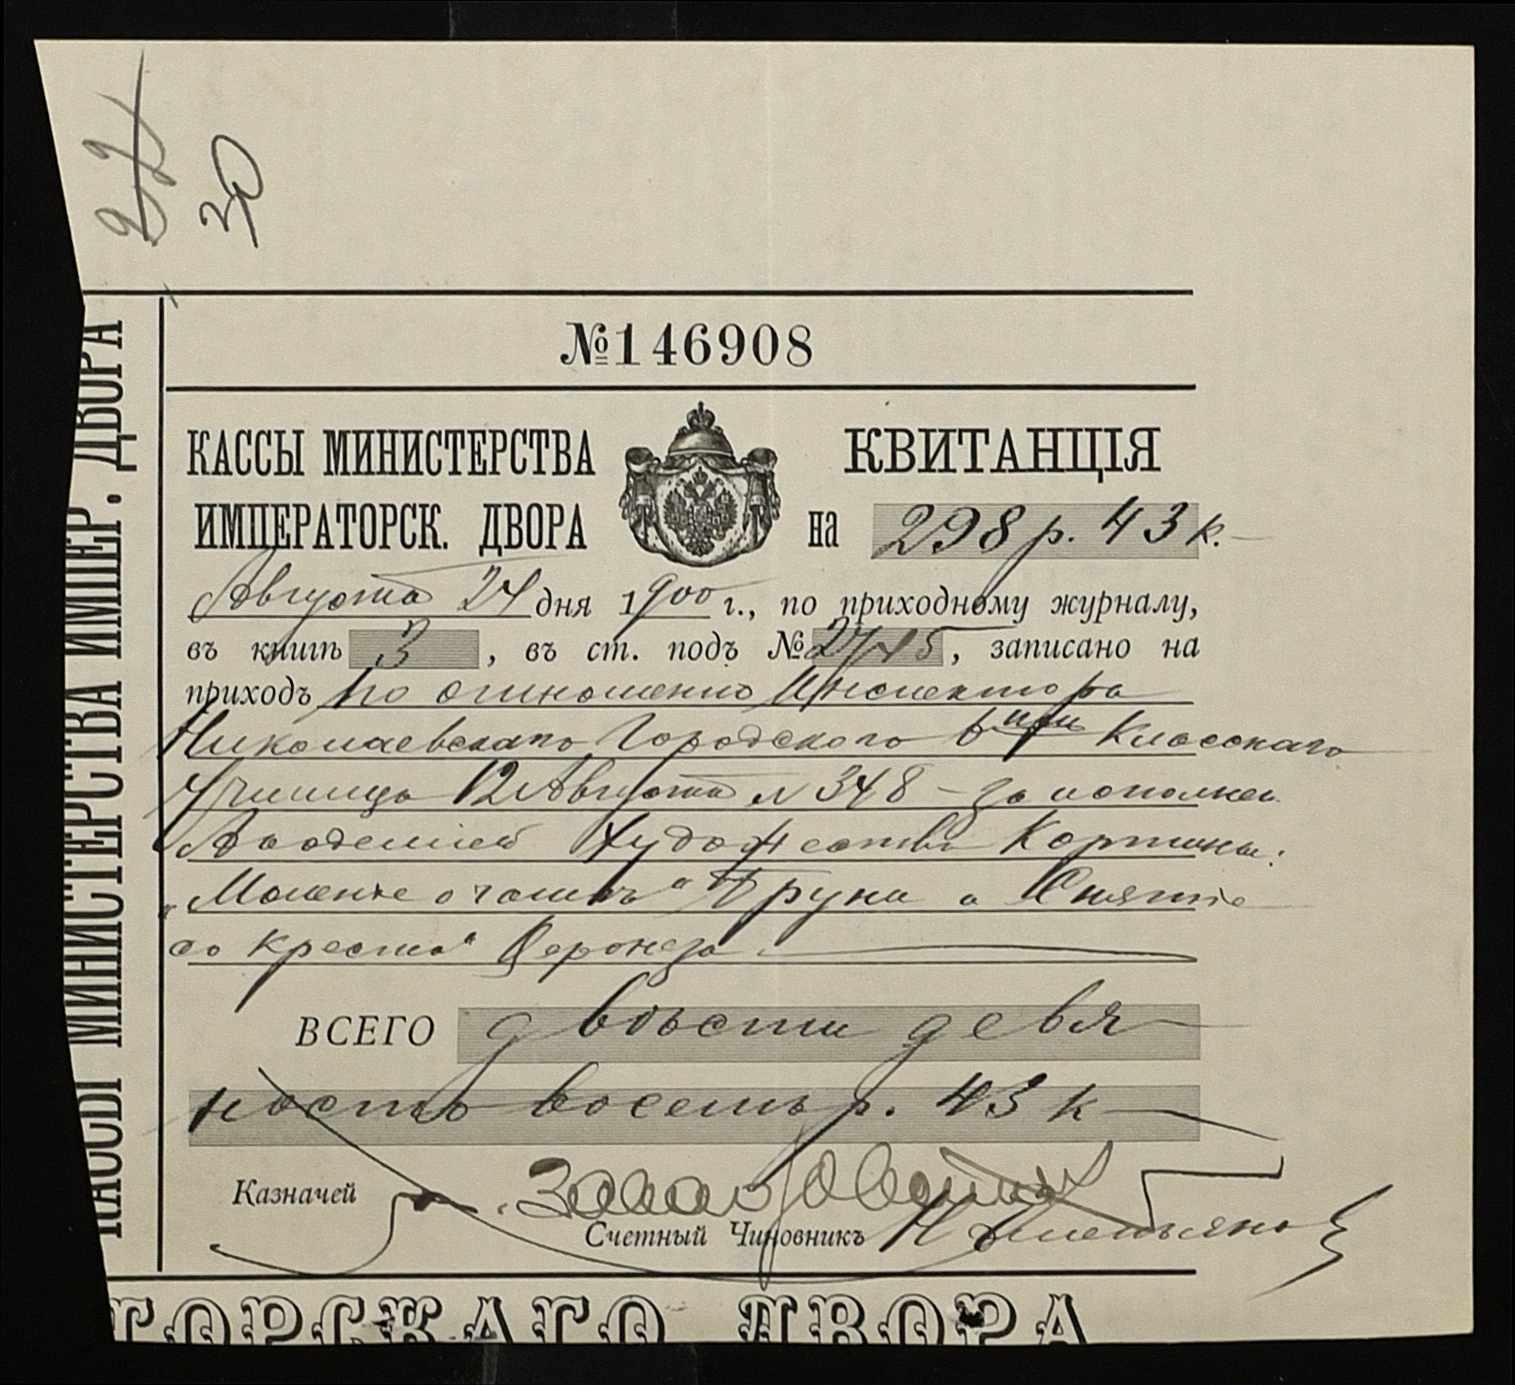 27
30
№146908
КАССЫ МИНИСТЕРСТВА
ИМПЕРАТОРСК. ДВОРА
КВИТАНЦІЯ
на 298 р. 43 к.
Августа 24 дня 1900 г., по приходному журналу,
въ книгѣ 3, въ ст. подъ № 2715, записано на
приходъ по отношенію Инспектора
Николаевскаго Городского 6ти Класснаго
Училища 12 Августа № 348 - за исполнен.
Академіей Художествъ Картины:
„Моленіе о чашѣ" Бруни и Снятіе
со креста" Веронеза
ВСЕГО двѣсти девя
носто восемь р. 43 к
Казначей
Счетный Чиновникъ Н Емельяновъ
КАССЫ МИНИСТЕРСТВА ИМПЕР. ДВОРА
ТОРСКАГО ДВОРА